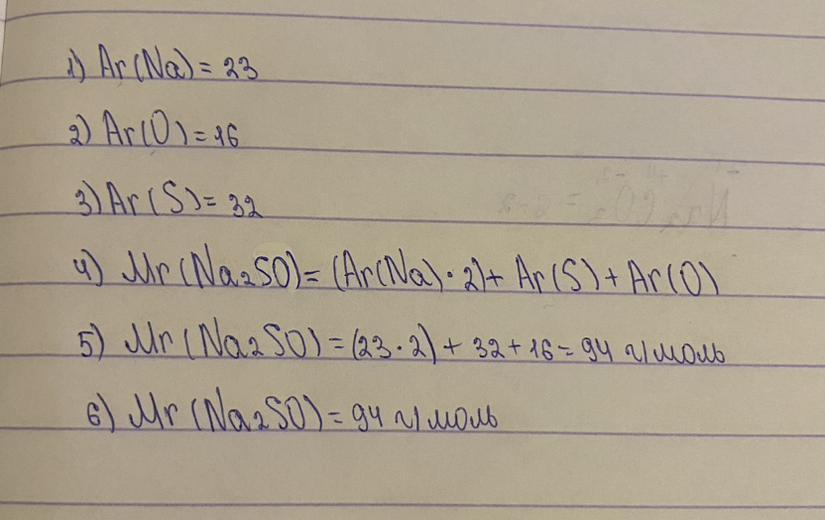 1) Ar(Na) = 23
2) Ar(O) = 16
3) Ar(S) = 32
4) Mr(Na₂SO) = (Ar(Na)·2) + Ar(S) + Ar(O)
5) Mr(Na₂SO) = (23·2) + 32 + 16 = 94 г/моль
6) Mr(Na₂SO) = 94 г/моль